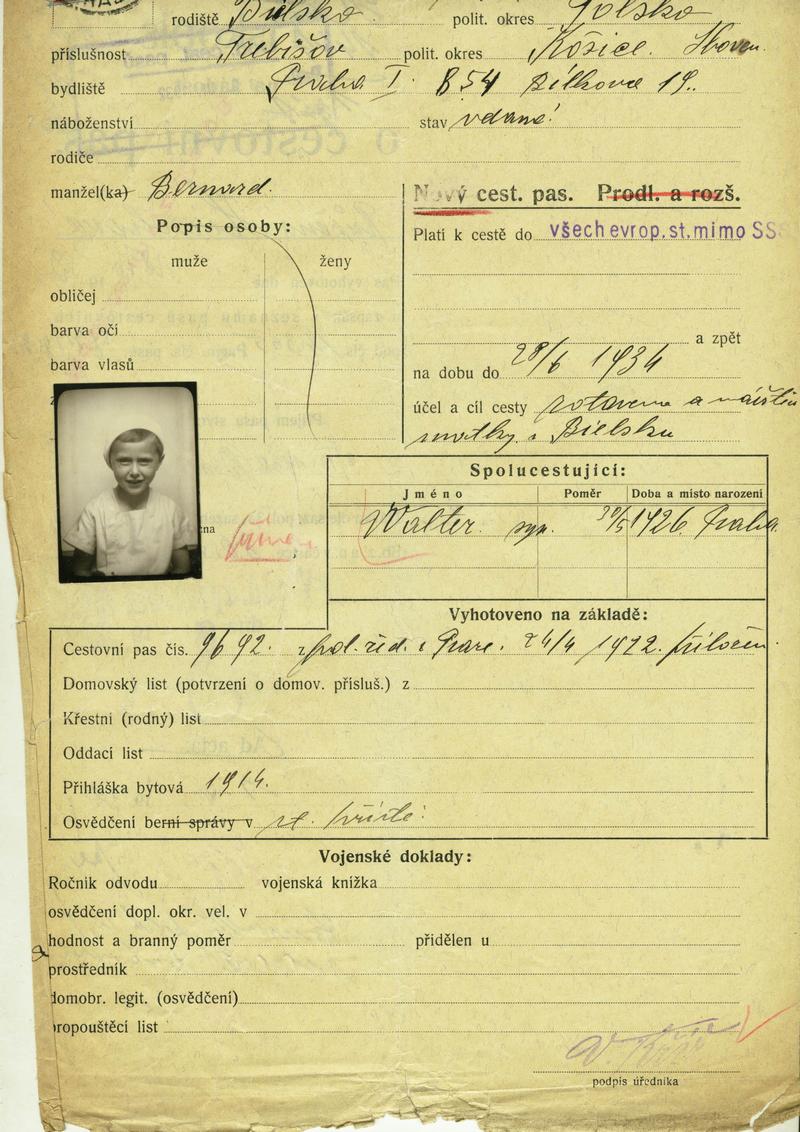 rodiště Bílsko. polit. okres Polsko
příslušnost Trebišov polit. okres Košice. Sloven.
bydliště Praha I. 854 Bílkova 19.
náboženství stav vdaná!
rodiče
manžel(ka) Bernard.
Nový cest. pas. Prodl. a rozš.
Popis osoby:
Platí k cestě do všech evrop. st. mimo SS
muže ženy
obličej
barva očí
a zpět
barva vlasů
na dobu do 28/6 1934
účel a cíl cesty zotavená a
matky v Bielsku
Spolucestující:
Jméno Poměr Doba a místo narození
Walter. syn. 30/5 1926. Praha
Vyhotoveno na základě:
Cestovní pas čís. 9692. pol. řed. v Praze. 24/4
Domovský list (potvrzení o domov. přísluš.) z
Křestní (rodný) list
Oddací list
Přihláška bytová 1914.
Osvědčení berní správy v
Vojenské doklady:
Ročník odvodu vojenská knížka
osvědčení dopl. okr. vel. v
hodnost a branný poměr přidělen u
prostředník
domobr. legit. (osvědčení)
propouštěcí list
podpis úředníka